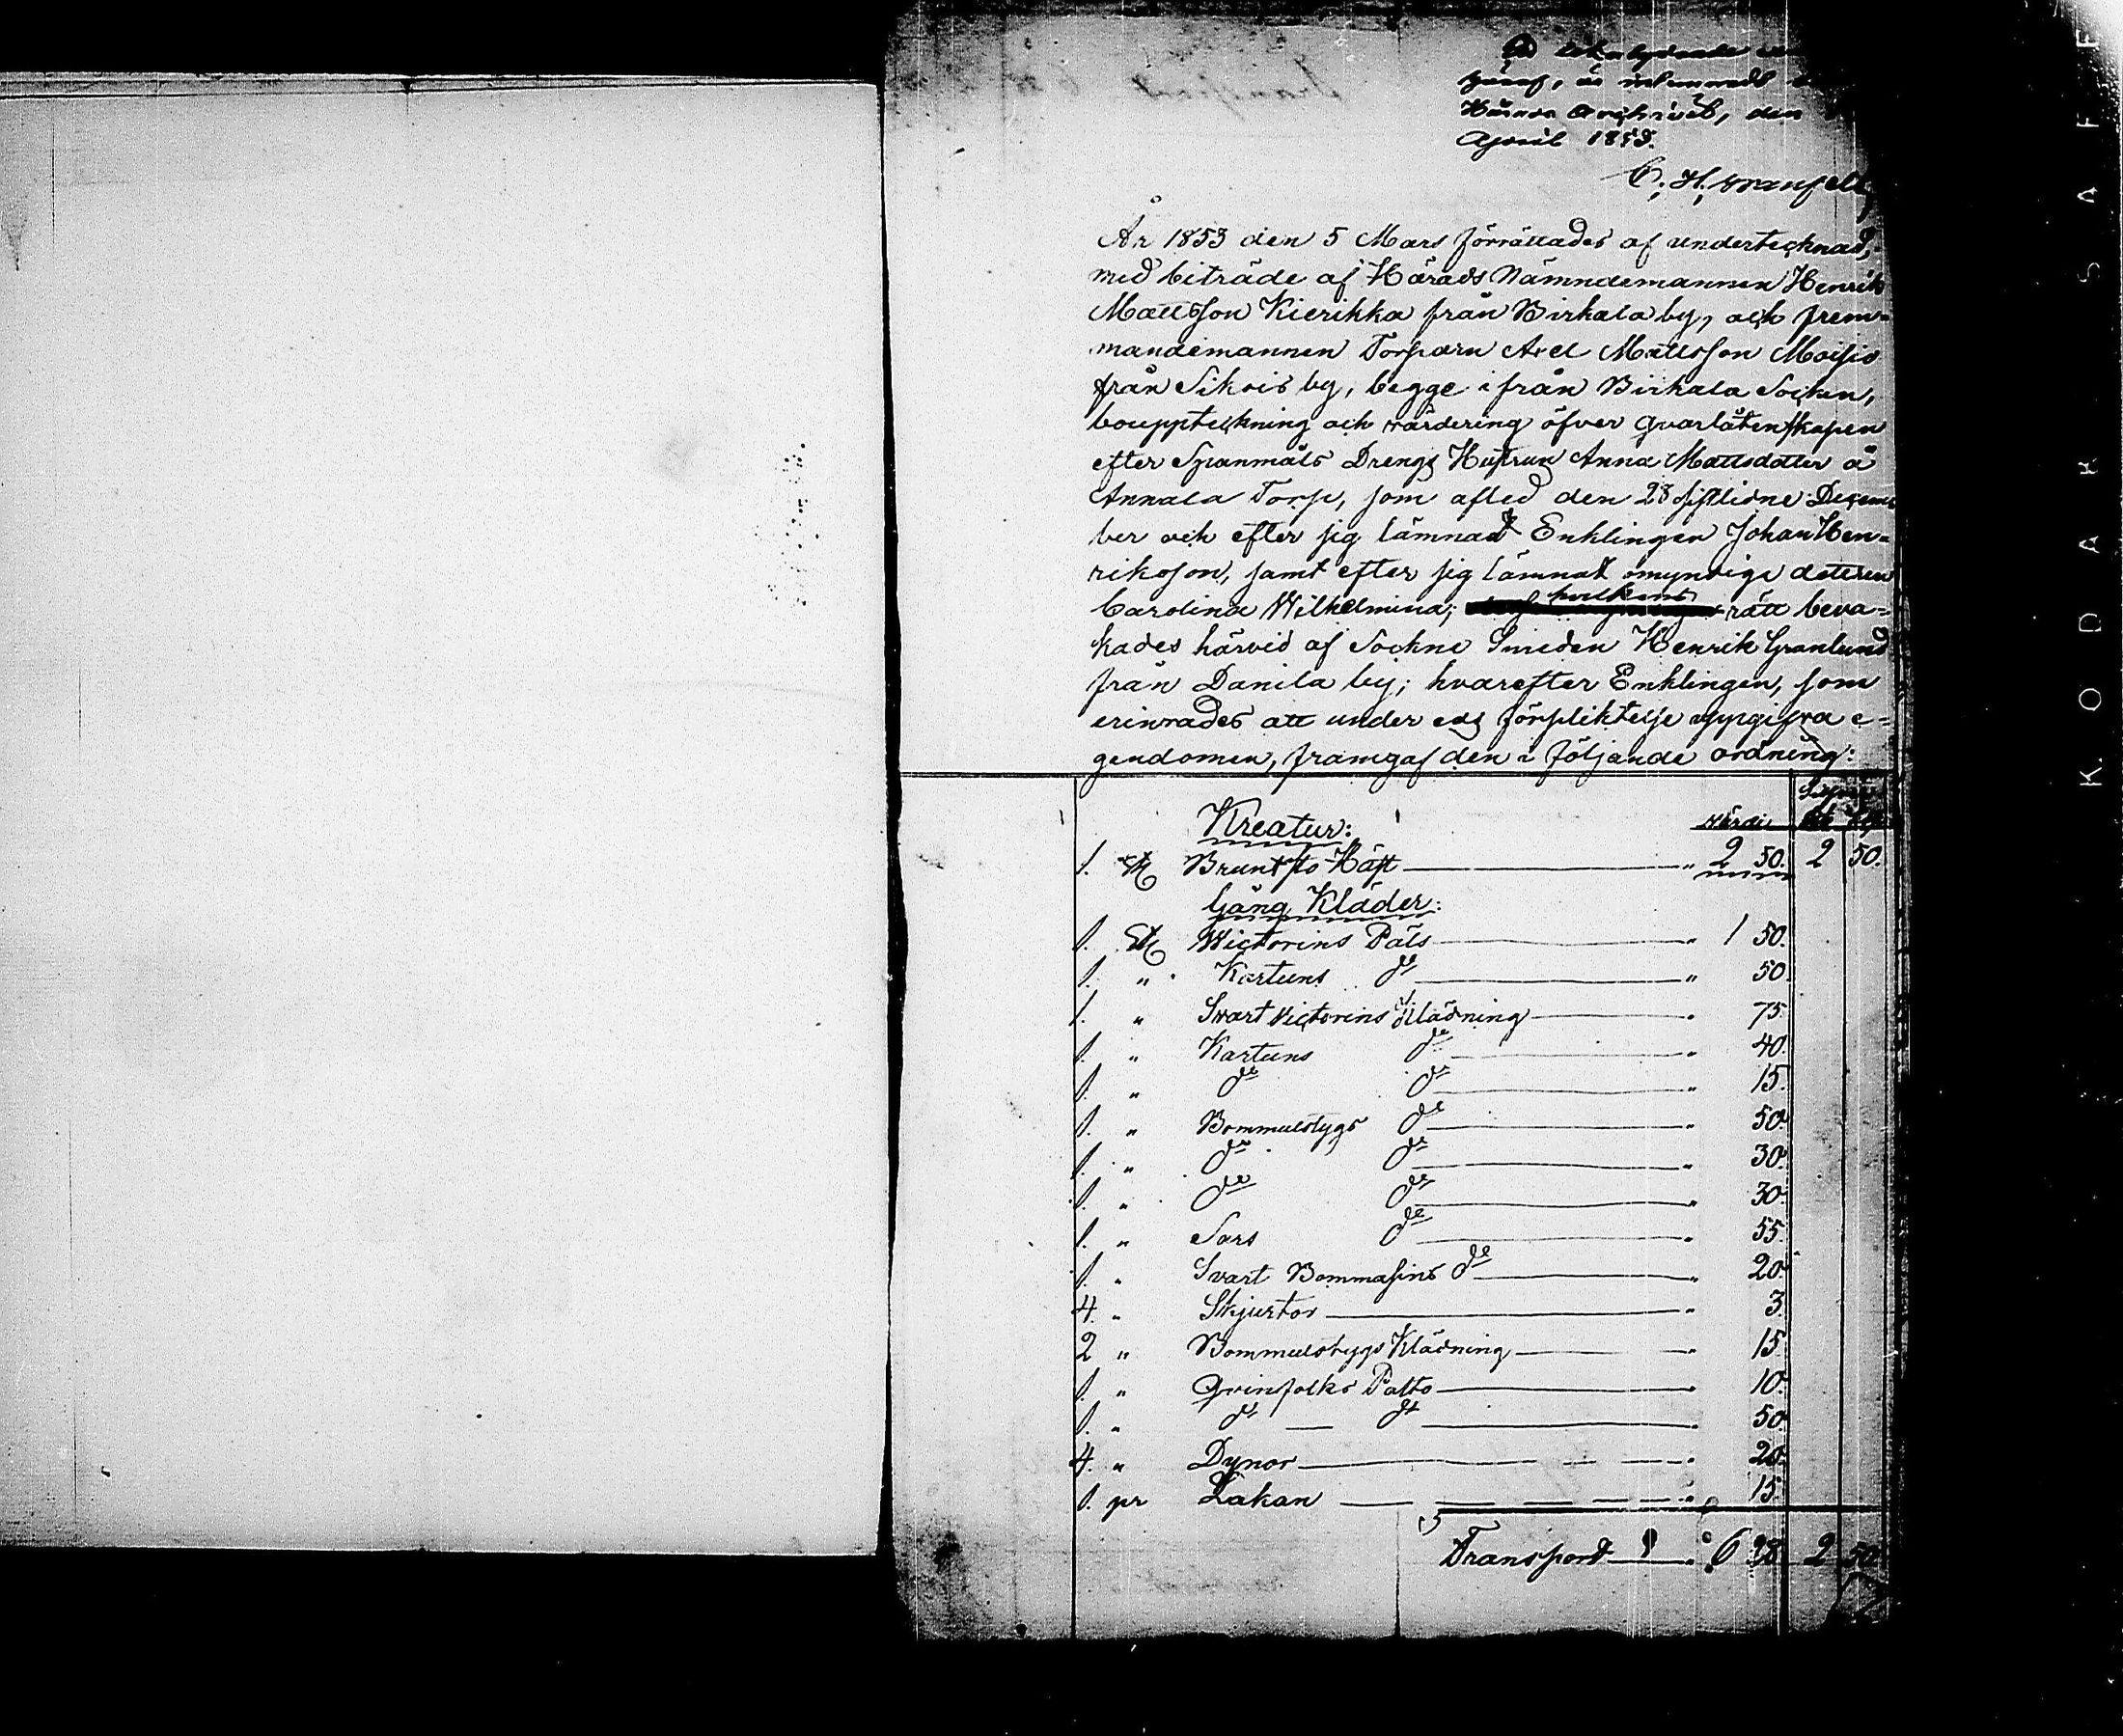 April 1853.
C. H.
År 1853 den 5 Mars förrättades af undertecknad,
med biträde af Härads Nämndemannen Henrik
Mattsson Kierikka från Birkala by, och frem-
mandemannen Torparn Axel Mattsson Moisio
från Sikois by, begge ifrån Birkala Socken,
bouppteckning och värdering öfver qvarlåtenskapen
efter Spanmåls Drengs Hustrun Anna Mattsdotter å
Annala Torp, som afled den 28 sistlidne Decem-
ber och efter sig lämnat Enklingen Johan Hen-
riksson, samt efter sig lämnat omyndige dottren
Carolina Wilhelmina; hvilkens rätt beva-
kades härvid af Sockne Smeden Henrik Granlund
från Danila by; hvarefter Enklingen, som
erinrades att under eds förpliktelse uppgifva e-
gendomen, framgaf den i följande ordning:
Kreatur: Värdi
1. St Brunt sto Häst " 2 50. 2 50.
Gång Kläder:
1. St Victorins Päls " 1 50.
1. " Kartuns do " 50
1. " Svart Victorins Klädning " 75
1. " Kartuns do " 40.
1. " do do " 15.
1. " Bommulstygs do " 50
1. " do do " 30.
1. " do do " 30.
1. " Sars do " 55.
1. " Svart Bommasins do " 20
4. " Skjurtor " 3.
2 " Bommulstygs Klädning " 15
1. " Qvinfolks Palto " 10.
1. " do do " 50.
4. " Dynor " 20
1. pr Lakan " 15.
Transport " 6 28 2 50
KODAK SAFE